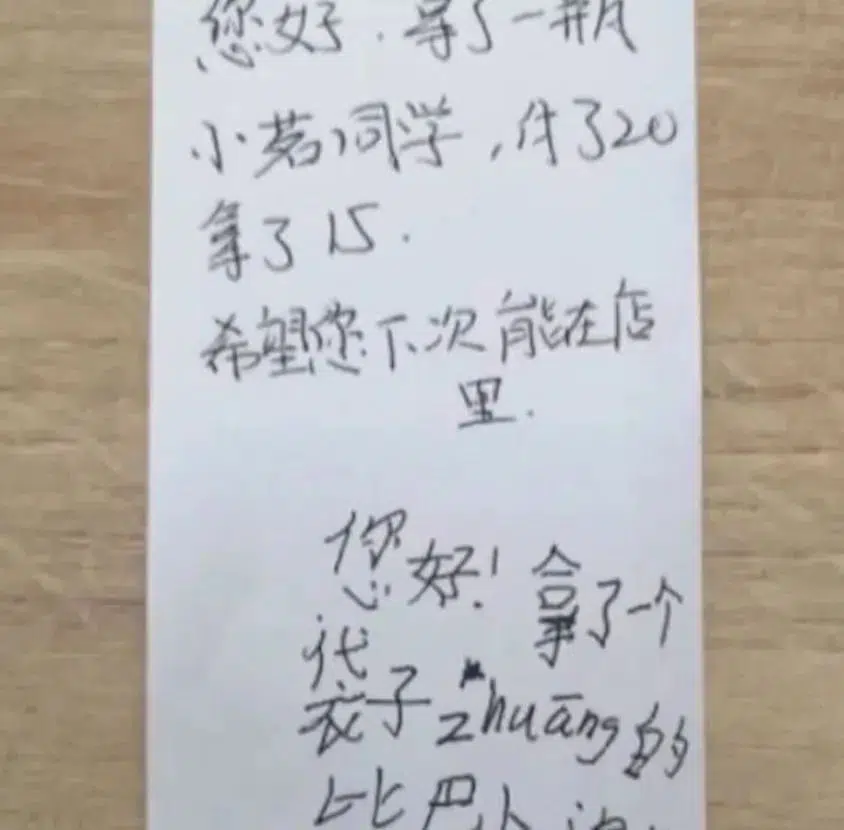 您好.拿了一瓶
小茗同学,付了20
拿了15.
希望您下次能在店
里.
您好!拿了一个
袋子zhuāng的
比巴卜